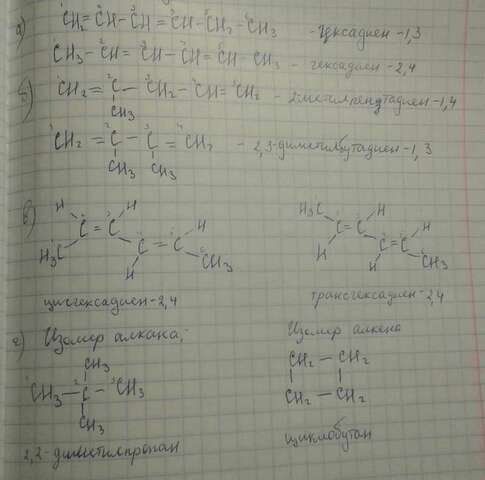 а) CH₂=CH-CH=CH-CH₂-CH₃ - гексадиен-1,3
CH₃-CH=CH-CH=CH-CH₃ - гексадиен-2,4
б) CH₂=C-CH₂-CH=CH₂ - 2 метилпентадиен-1,4
CH₃
CH₂=C-C=CH₂ - 2,3-диметилбутадиен-1,3
CH₃ CH₃
в) H H
C=C H
H₃C C=C
H CH₃
цисгексадиен-2,4
H₃C H
C=C H
H C=C
H CH₃
трансгексадиен-2,4
г) Изомер алкана:
CH₃
CH₃-C-CH₃
CH₃
2,2-диметилпропан
Изомер алкена
CH₂-CH₂
CH₂-CH₂
циклобутан